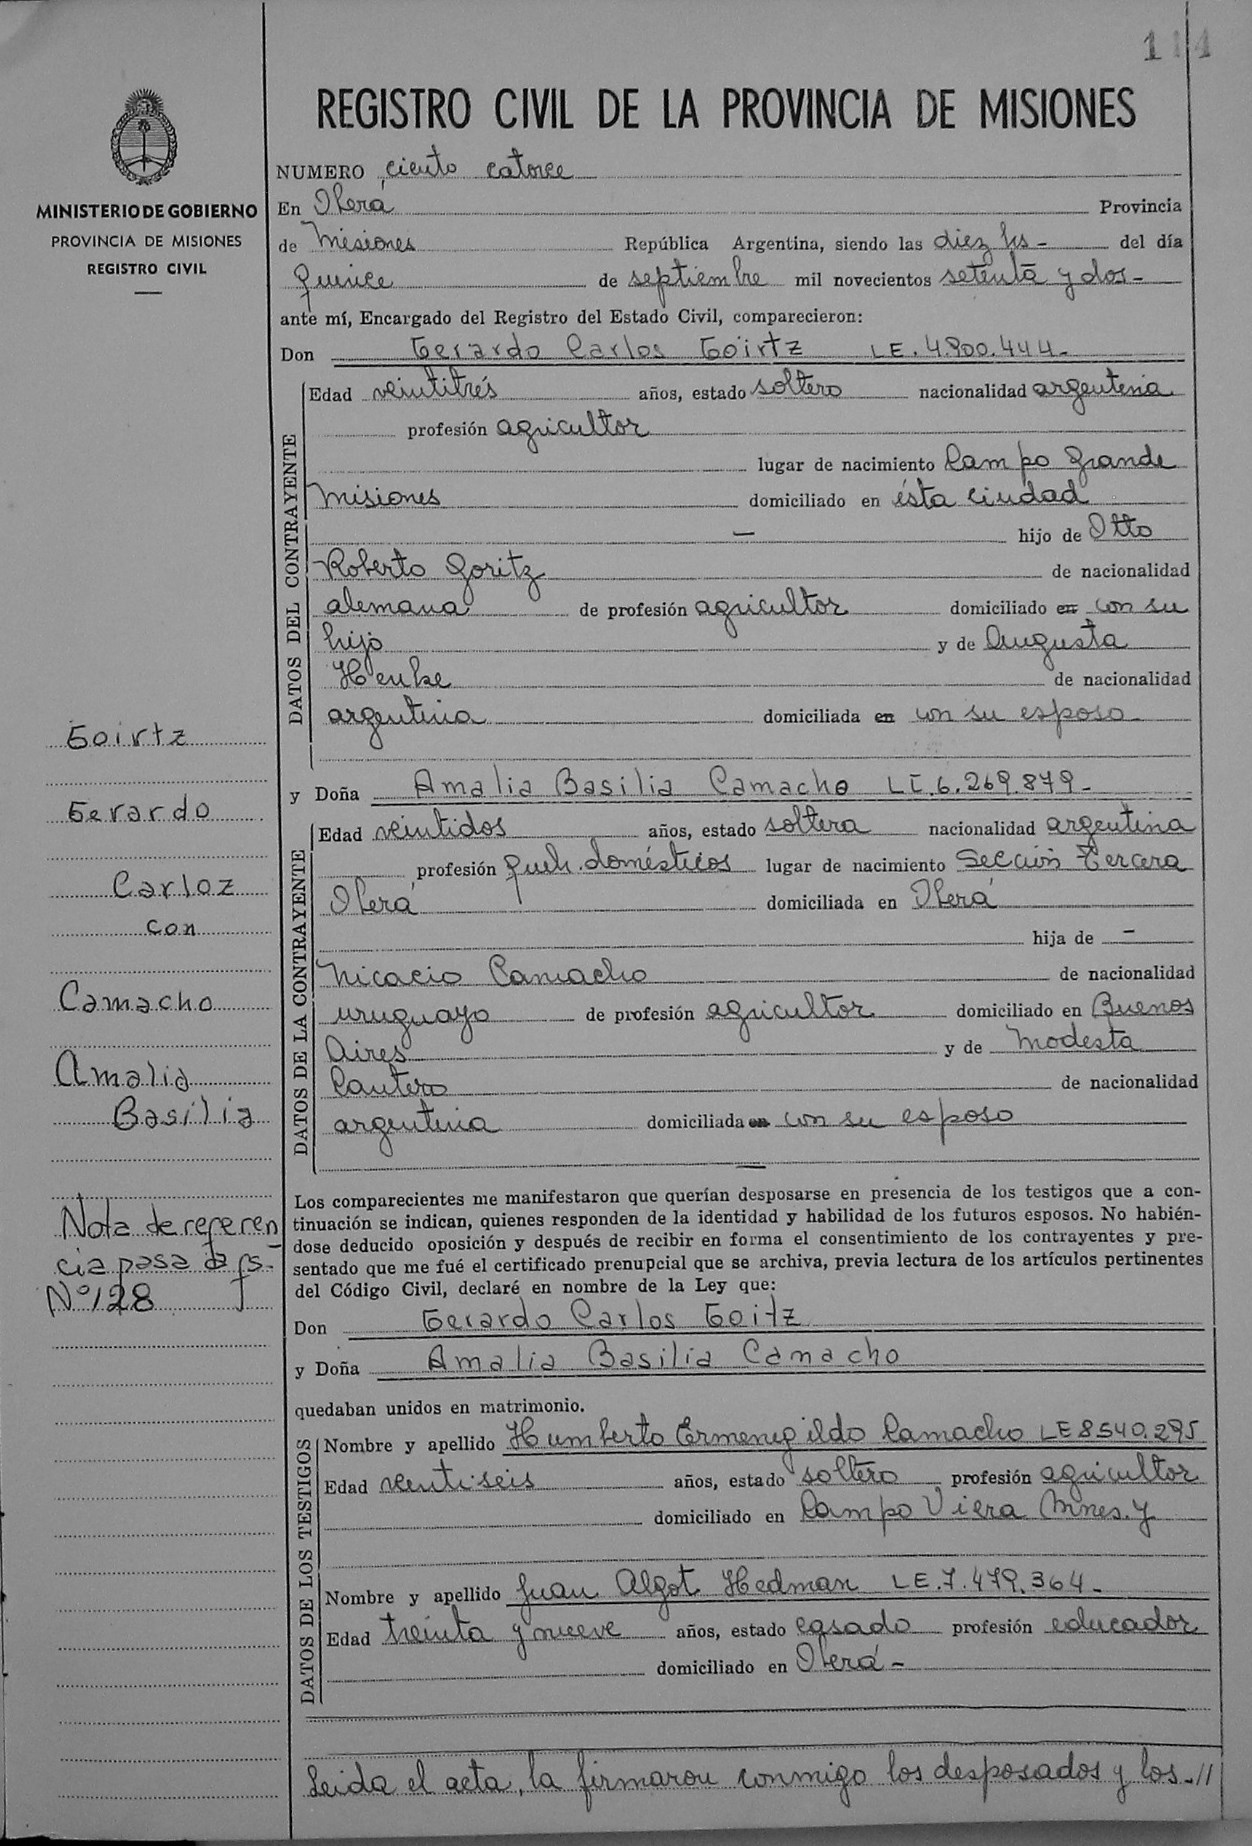 114
REGISTRO CIVIL DE LA PROVINCIA DE MISIONES
MINISTERIO DE GOBIERNO
PROVINCIA DE MISIONES
REGISTRO CIVIL
NUMERO ciento catorce
En Oberá Provincia
de Misiones República Argentina, siendo las diez hs- del día
quince de septiembre mil novecientos setenta y dos-
ante mí, Encargado del Registro del Estado Civil, comparecieron:
Don Gerardo Carlos Goirtz LE. 4.900.444-
DATOS DEL CONTRAYENTE
Edad veintitrés años, estado soltero nacionalidad argentina
profesión agricultor
lugar de nacimiento Campo Grande
Misiones domiciliado en ésta ciudad
— hijo de Otto
Roberto Goritz de nacionalidad
alemana de profesión agricultor domiciliado en con su
hijo y de Augusta
Henke de nacionalidad
argentina domiciliada en con su esposo-
y Doña Amalia Basilia Camacho LC. 6.269.879-
DATOS DE LA CONTRAYENTE
Edad veintidos años, estado soltera nacionalidad argentina
profesión queh. domésticos lugar de nacimiento Sección Tercera
Oberá domiciliada en Oberá
hija de -
Nicacio Camacho de nacionalidad
uruguayo de profesión agricultor domiciliado en Buenos
Aires y de Modesta
Cantero de nacionalidad
argentina domiciliada en con su esposo
—
Los comparecientes me manifestaron que querían desposarse en presencia de los testigos que a con-
tinuación se indican, quienes responden de la identidad y habilidad de los futuros esposos. No habién-
dose deducido oposición y después de recibir en forma el consentimiento de los contrayentes y pre-
sentado que me fué el certificado prenupcial que se archiva, previa lectura de los artículos pertinentes
del Código Civil, declaré en nombre de la Ley que:
Don Gerardo Carlos Goitz
y Doña Amalia Basilia Camacho
quedaban unidos en matrimonio.
DATOS DE LOS TESTIGOS
Nombre y apellido Humberto Ermenegildo Camacho LE 8.540.295
Edad veintiseis años, estado soltero profesión agricultor
domiciliado en Campo Viera Mnes. y
Nombre y apellido Juan Algot Hedman LE. 7.479.364-
Edad treinta y nueve años, estado casado profesión educador
domiciliado en Oberá-
Leida el acta, la firmaron conmigo los desposados y los-//
Goirtz
Gerardo
Carloz
con
Camacho
Amalia
Basilia
Nota de referen
cia pasa a fs.-
Nº 128